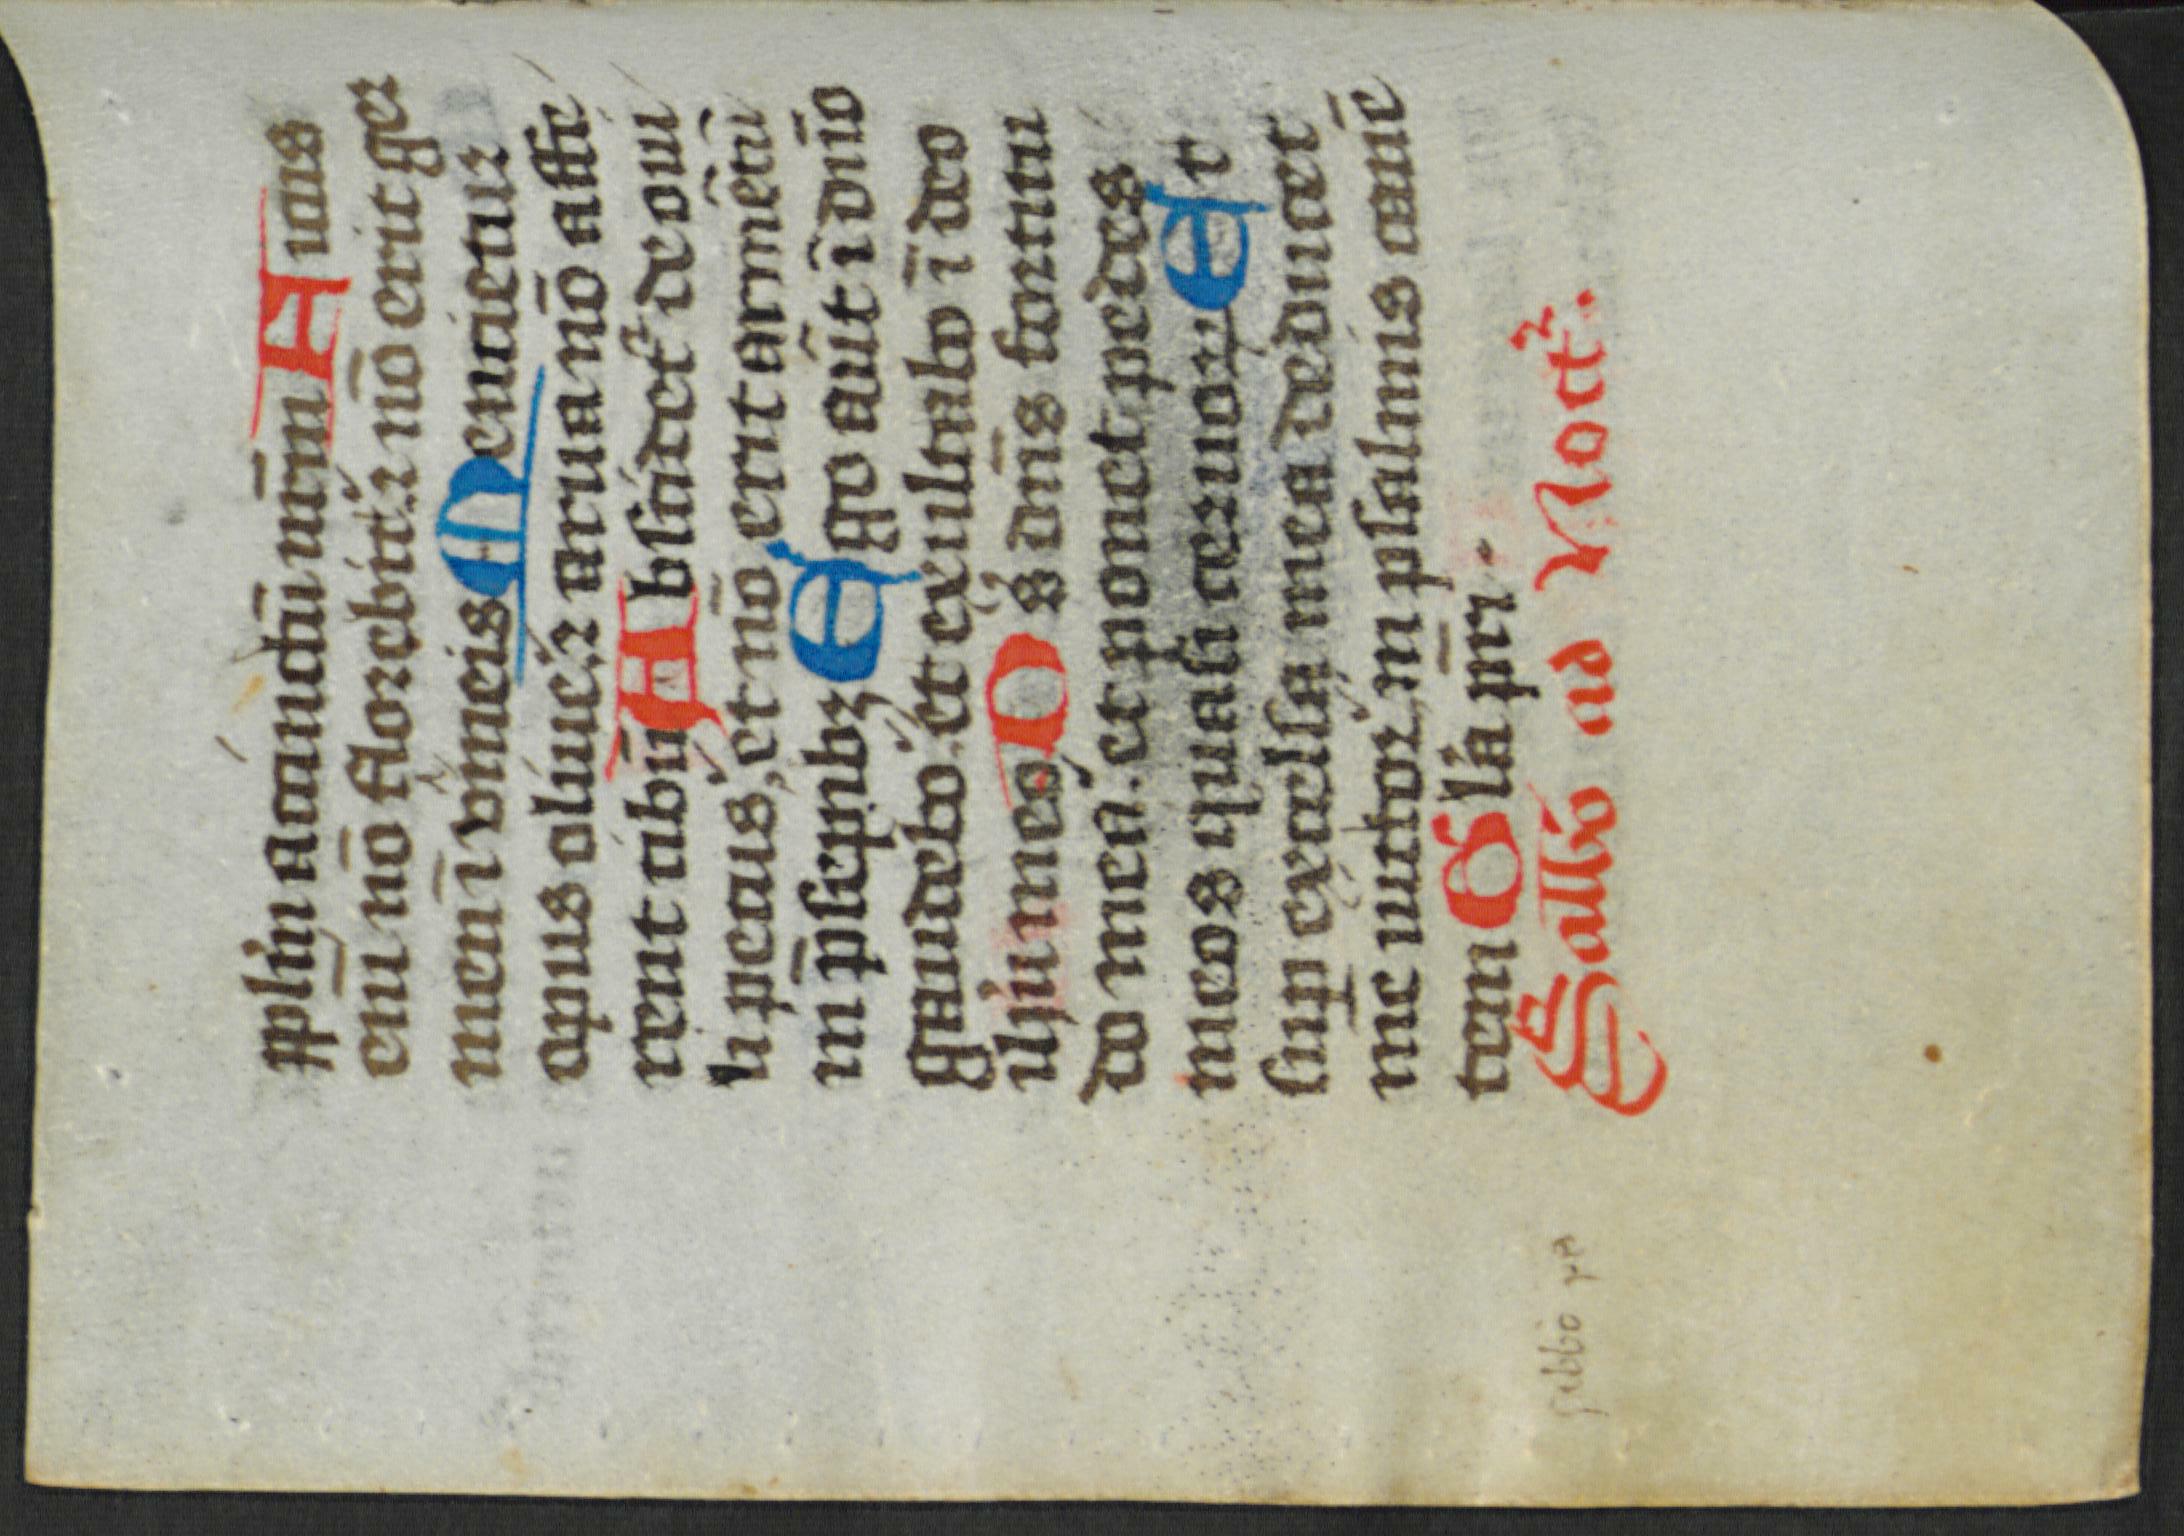 pplm̄ accinctū nr̄m Ficus
enī nō florebit. ⁊ nō erit ger
men ī vineis Mencietur
opus oliue. ⁊ arua nō affe
rent cibū Abscidet᷑ de oui
li pecus, et nō erit armētū
in p̄sepibꝫ Ego aūt ī dnō
gaudebo. et exultabo ī deo
ihū meo Ds dn̄s fortitu
do mea. et ponet pedes
meos quasi ceruoꝝ Et
suꝑ excelsa mea deducet
me uictor, in psalmis canē
tem Glā pr̄i.
Sabbo ad Noct᷑.
sabbo